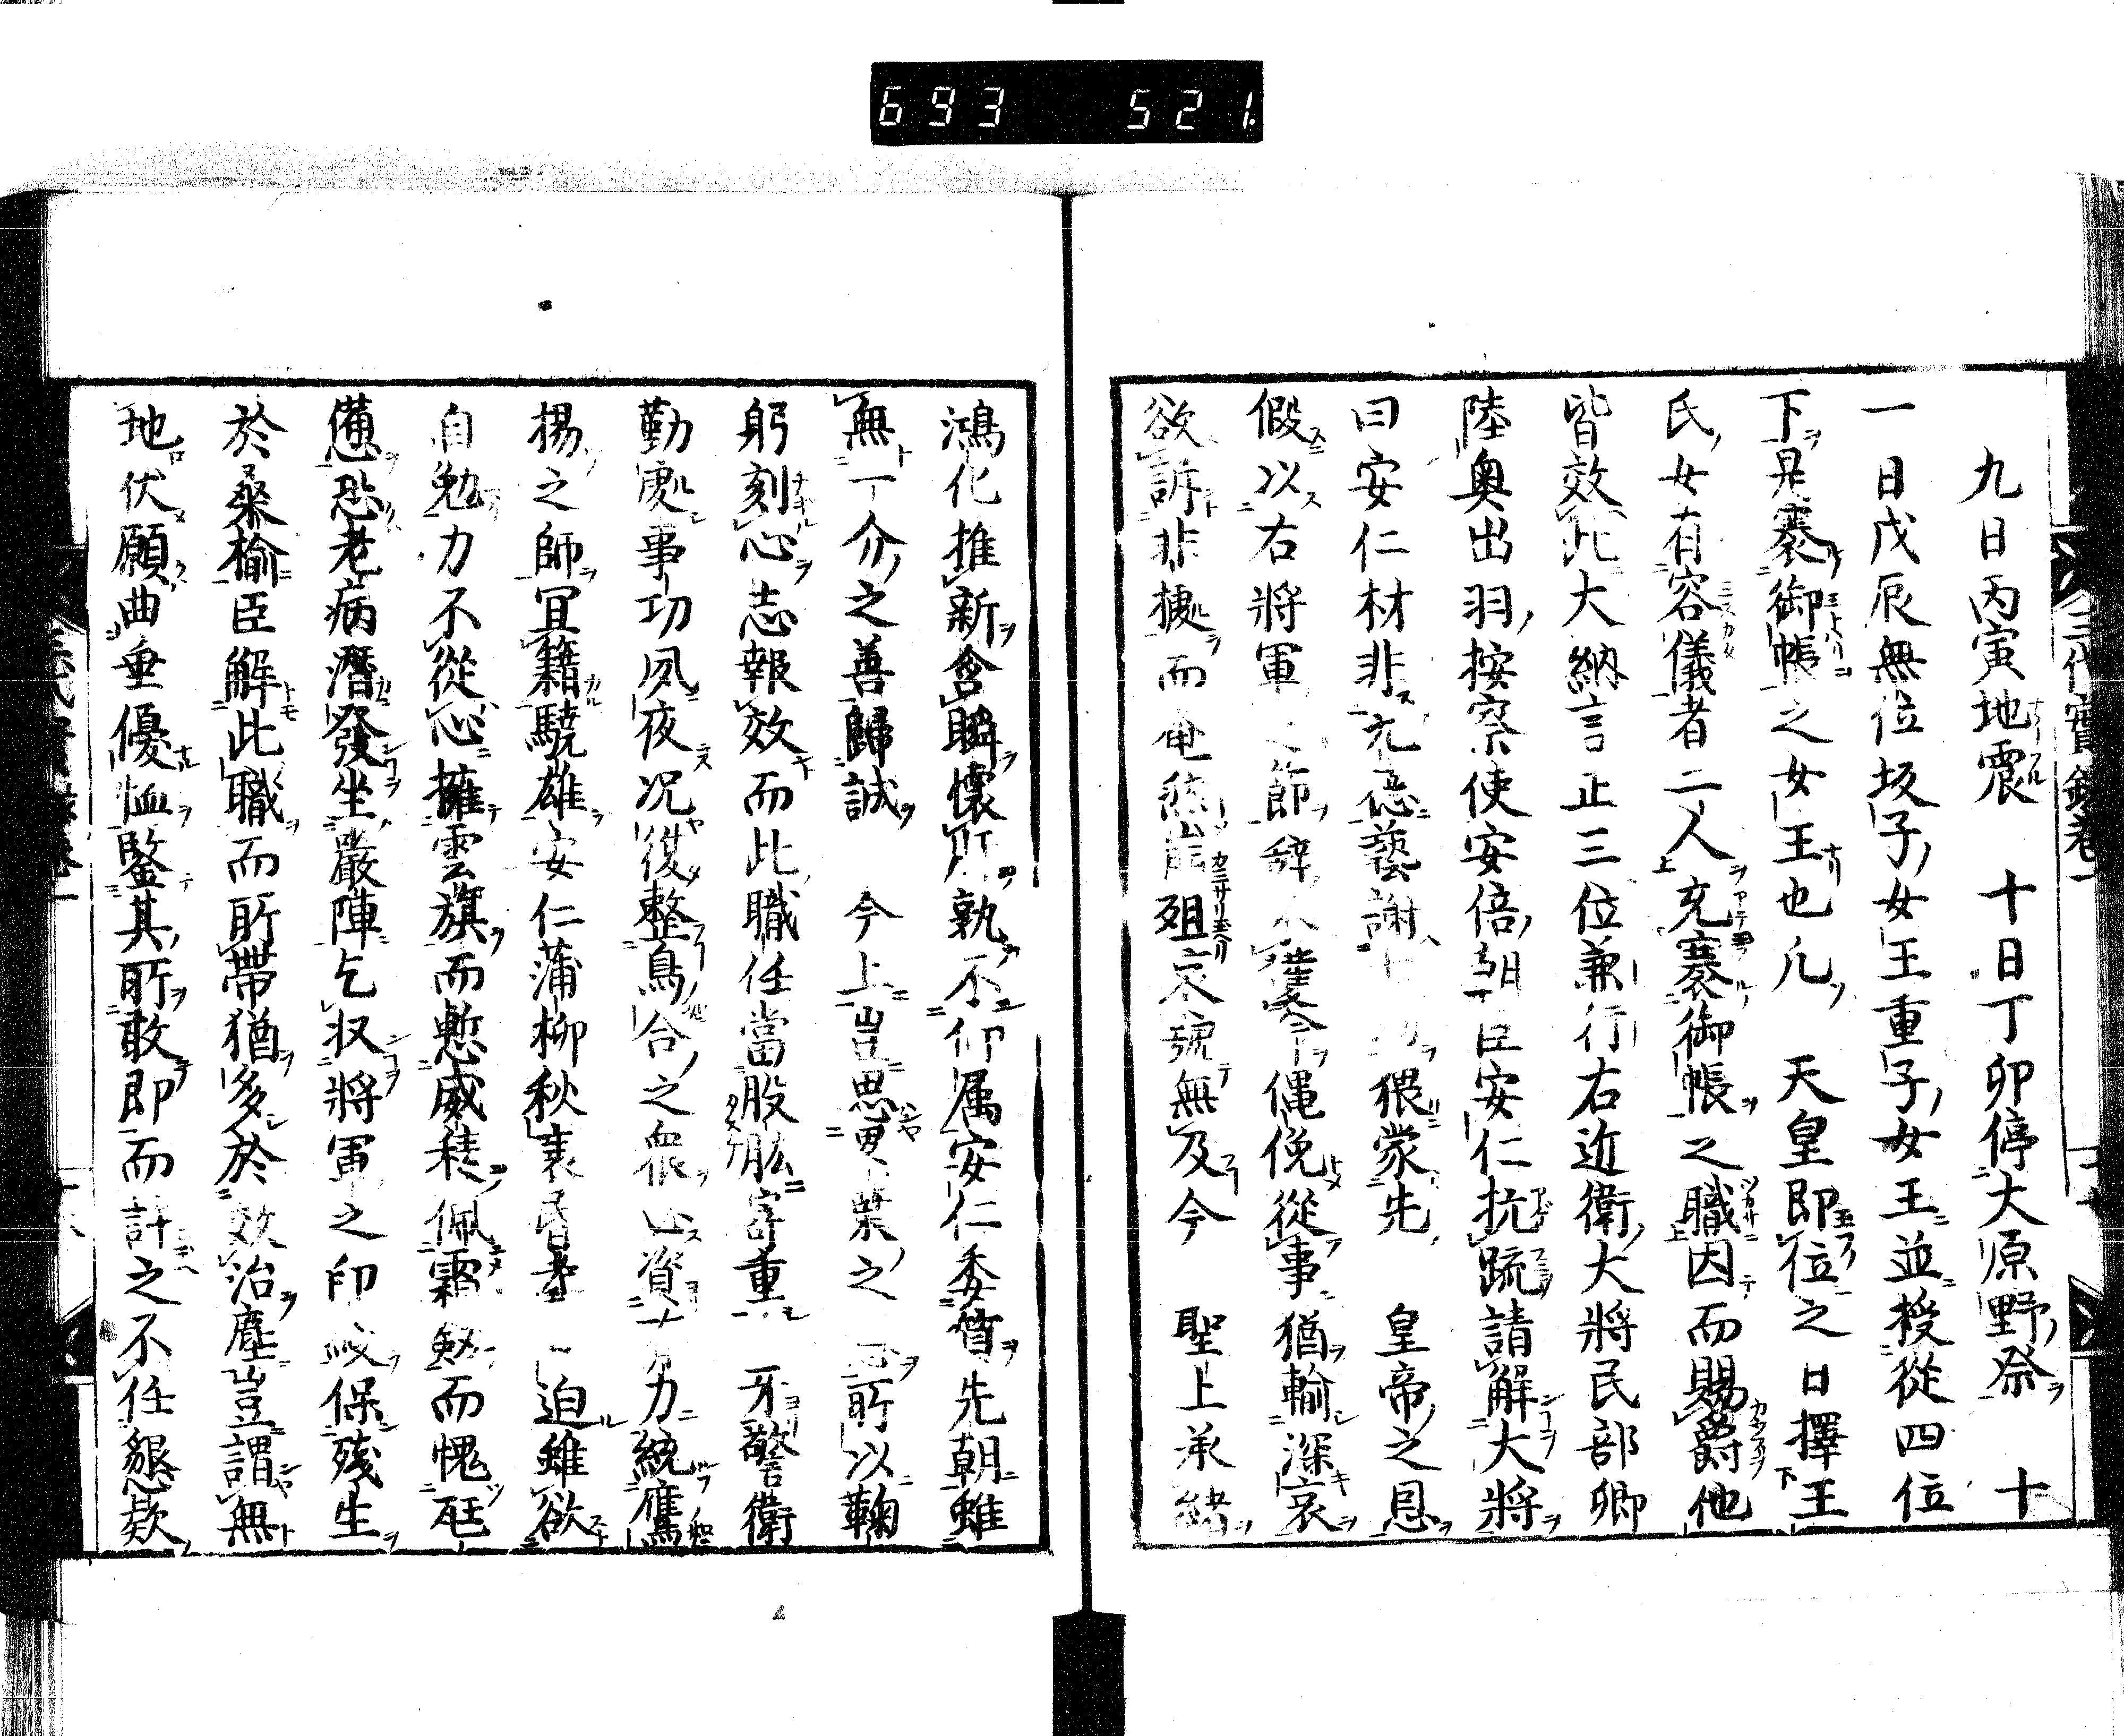 693 521
三代實錄卷一
九日丙寅地震 十日丁卯停大原野祭 十
一日戊辰無位坂子女王重子女王並授從四位
下是褰御帳之女王也凡 天皇即位之日擇王
氏女有容儀者二人充褰御帳之職因而賜爵他
皆效此大納言正三位兼行右近衛大將民部卿
陸奧出羽按察使安倍朝臣安仁抗疏請解大將
曰安仁材非允 藝謝 猥蒙先 皇帝之恩
假以右將軍之節辭不獲命僶俛從事猶輸深衷
欲訴非據而奄 殂哀號無及今 聖上承緒
鴻化推新含 懷 孰不仰属安仁委質先朝雖
無一介之善歸誠 今上豈思 葉之 所以鞠
躬刻心志報效而此職任當股肱寄重 牙警衛
勤處事切夙夜况復整鳥合之衆 資 力統鷹
揚之師冝籍驍雄安仁蒲柳秋衰 迫雖欲
自勉力不從心擁雲旗而慙威 佩霜 而愧
憊恐老病潛發坐 嚴陣乞 將軍之印 保殘生
於桑榆臣解此職而所帶猶多於效治塵豈謂無
地伏願曲垂優恤鑒其所敢即而許之不任懇款